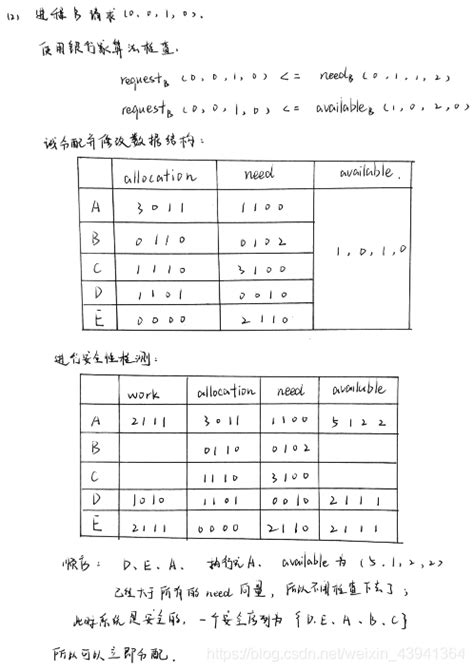 (2) 进程B请求(0,0,1,0).
使用银行家算法检查.
requestB (0,0,1,0) <= needB (0,1,1,2)
requestB (0,0,1,0) <= availableB (1,0,2,0)
试分配并修改数据结构:
allocation need available.
A 3011 1100
B 0110 0102
1,0,1,0
C 1110 3100
D 1101 0010
E 0000 2110
进行安全性检测:
work allocation need available
A 2111 3011 1100 5122
B 0110 0102
C 1110 3100
D 1010 1101 0010 2111
E 2111 0000 2110 2111
顺序: D、E、A. 执行完A. available为(5,1,2,2)
已经大于所有的need向量,所以不用检查下去了;
此时系统是安全的,一个安全序列为{D、E、A、B、C}
所以可以立即分配.
https://blog.csdn.net/weixin_43941364